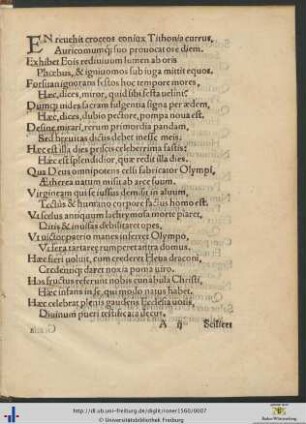 EN reuehit croceos coniux Tithonia currus,
Auricomumq́; suo prouocat ore diem.
Exhibet Eois rediuiuum lumen ab oris
Phœbus, & igniuomos sub iuga mittit equos.
Forsitan ignorans festos hoc tempore mores,
Hæc, dices, miror, quid sibi festa uelint?
Dumq́; uides sacram fulgentia signa per ædem,
Hæc, dices, dubio pectore, pompa noua est.
Desine mirari, rerum primordia pandam,
Sed breuibus dictis debet inesse meis.
Hæc est illa dies priscis celeberrima fastis:
Hæc est splendidior, quæ redit illa dies.
Qua Deus omnipotens celsi fabricator Olympi,
Ætherea natum misit ab arce suum.
Virgineam qui se iussus demisit in aluum,
Tectus & humano corpore factus homo est.
Vt scelus antiquum lachrymosa morte piaret,
Ditis & inuisas debilitaret opes.
Vt uictor patrio manes inferret Olympo,
Vt fera tartarei rumperet antra domus.
Hæc fieri uoluit, cum crederet Heua draconi,
Credeniq́; daret noxia poma uiro.
Hos fructus referunt nobis cunabula Christi,
Hæc infans in se, qui modo natus habet.
Hæc celebrat plenis gaudens Ecclesia uotis,
Diuinum pueri testificata decus.
A ij Scilicet
http://dl.ub.uni-freiburg.de/diglit/roner1560/0007
© Universitätsbibliothek Freiburg
Baden-Württemberg